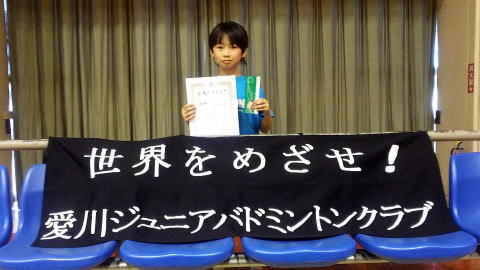 世界をめざせ！
愛川ジュニアバドミントンクラブ